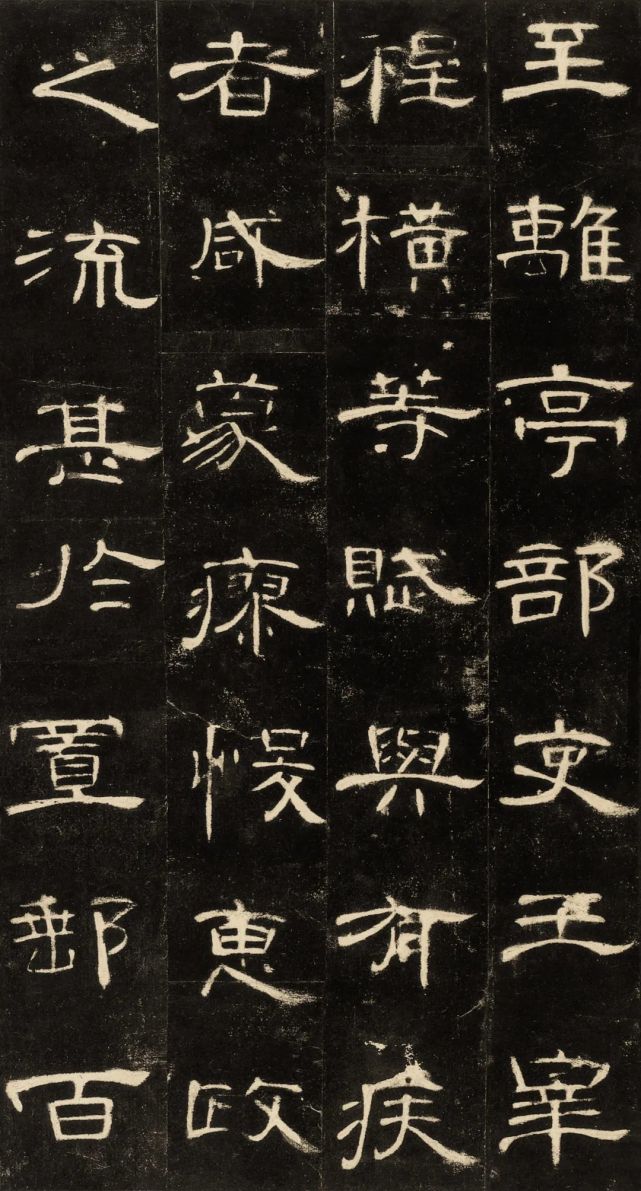 至離亭部吏王宰
程横等賦與有疾
者咸蒙瘳悛惠政
之流甚於置郵百